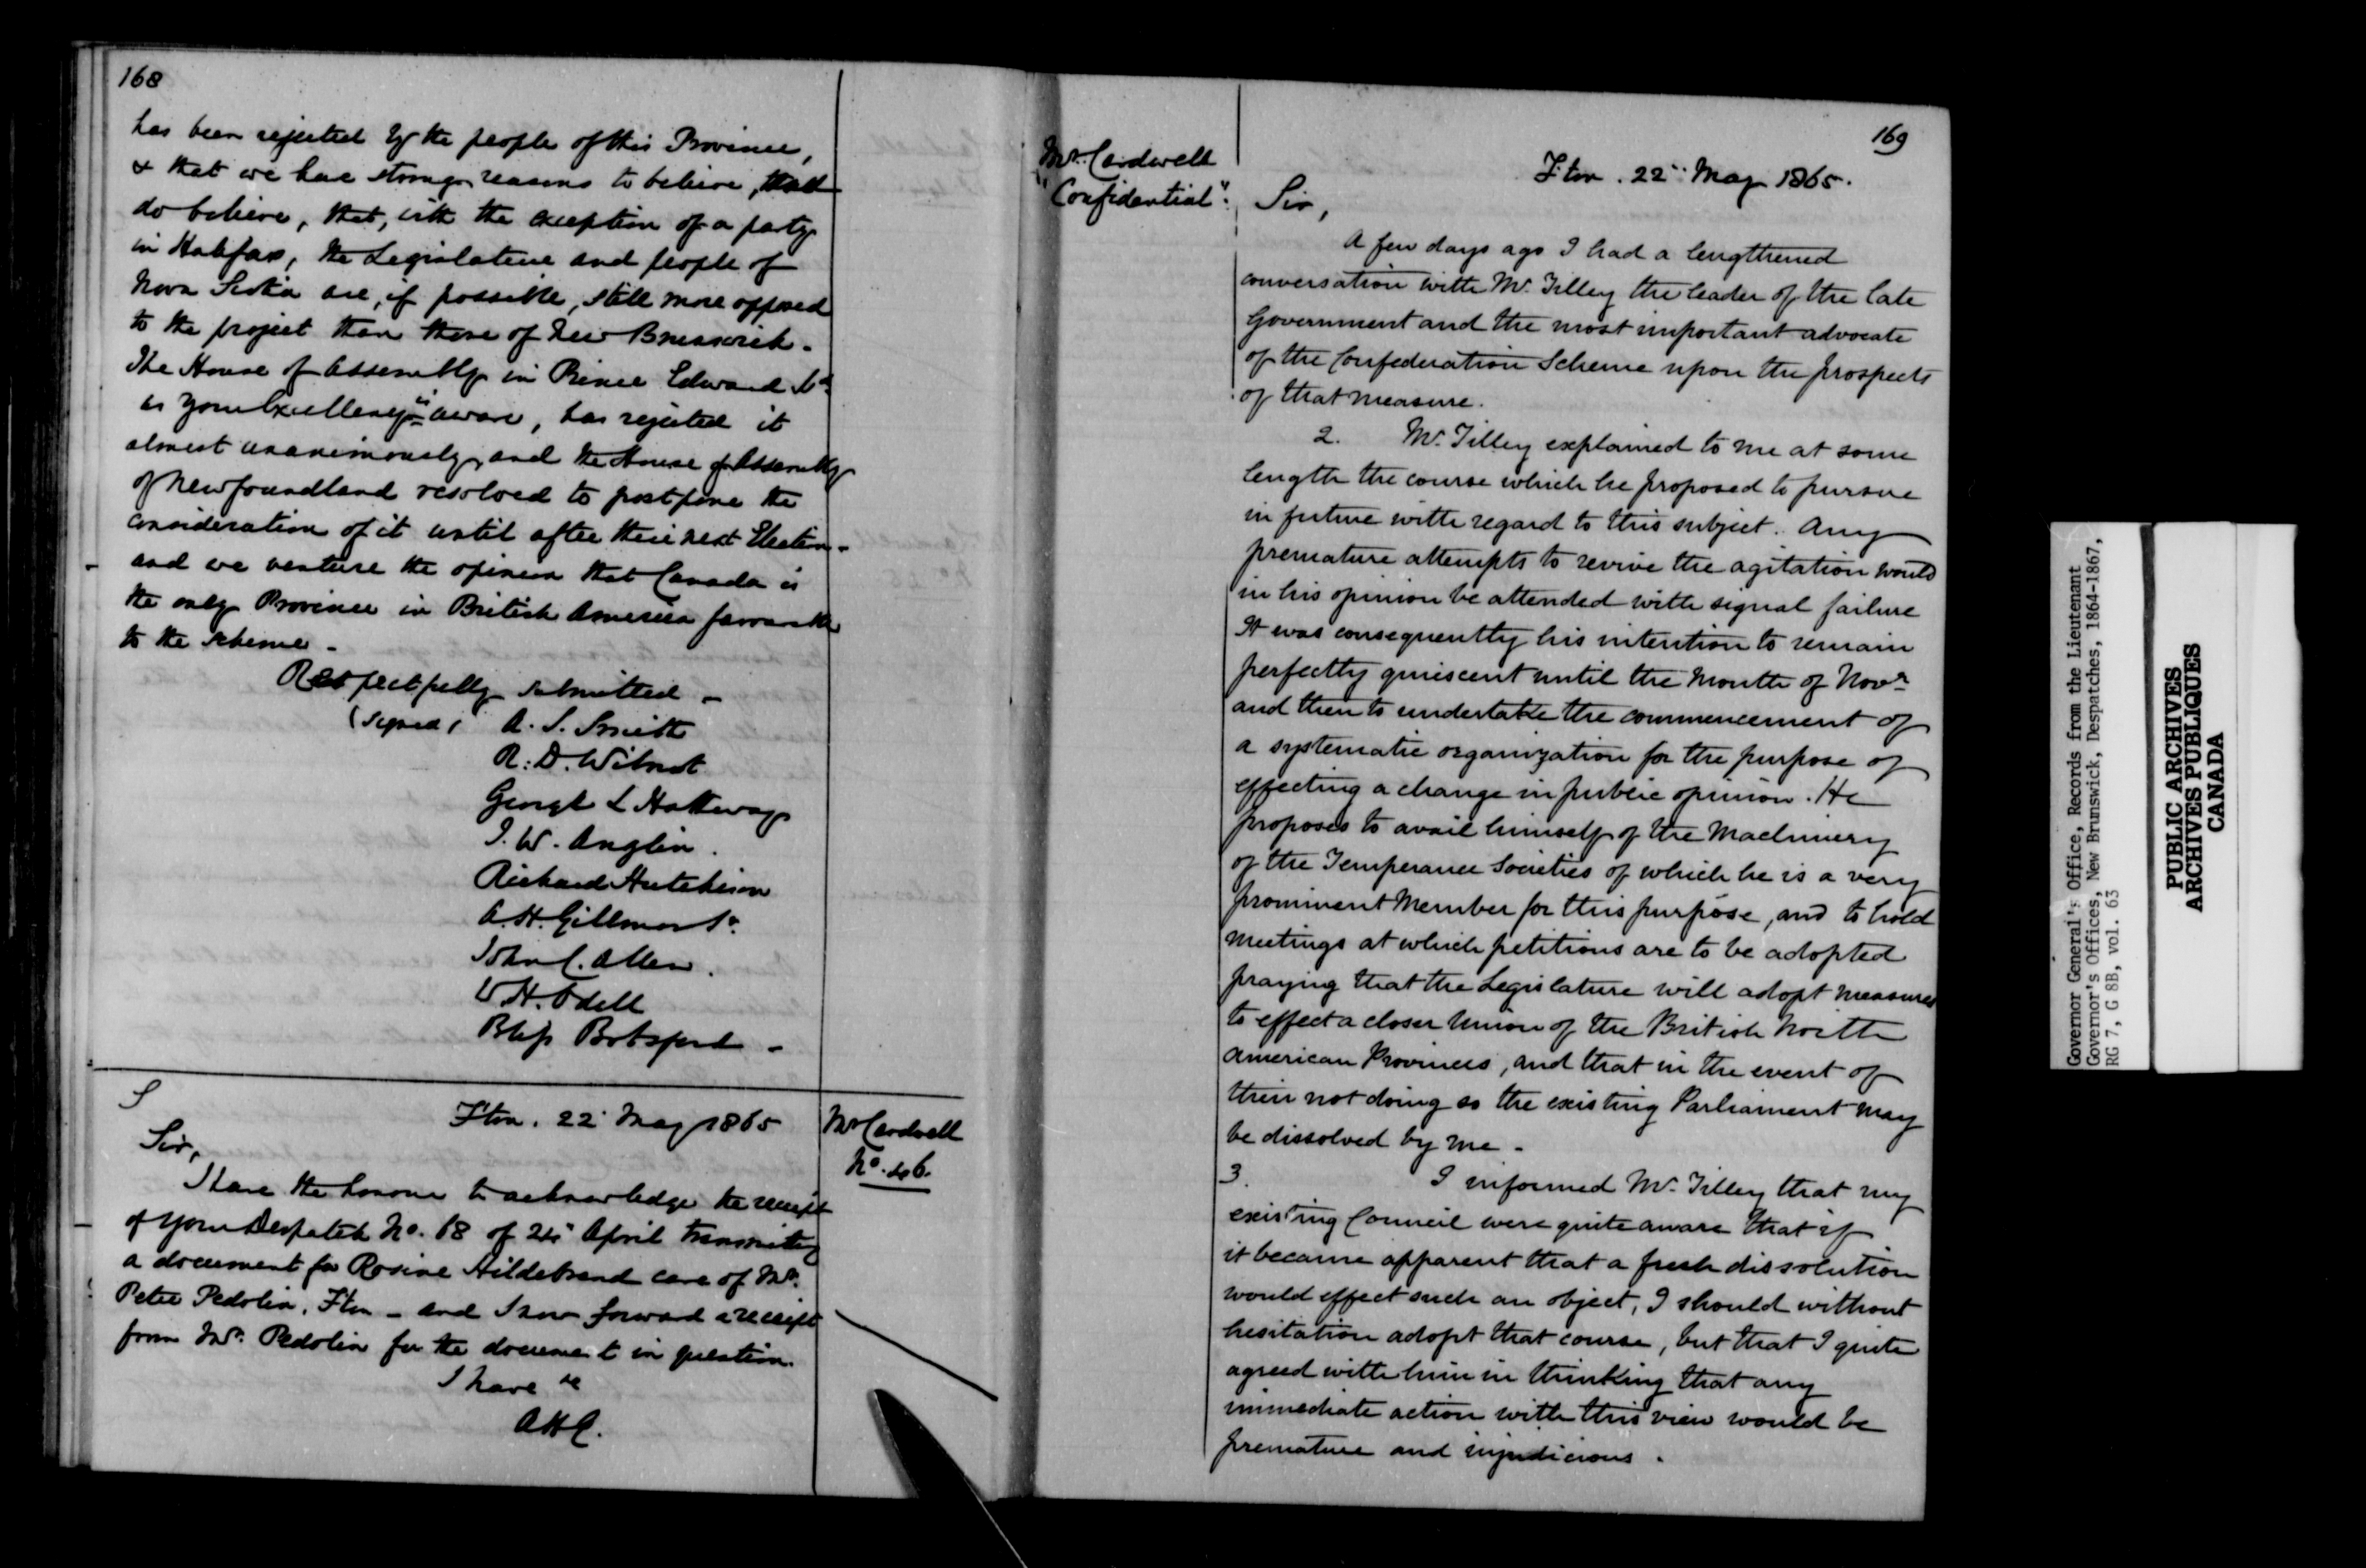 168
has been rejected by the people of this Province,
& that we have strong reasons to believe, and
do believe, that, with the exception of a party
in Halifax, the Legislature and people of
Nova Scotia are, if possible, still more opposed
to the project than those of New Brunswick.
The House of Assembly in Prince Edward Isd
as your Excellency is aware, has rejected it
almost unanimously, and the House of Assembly
of Newfoundland resolved to postpone the
consideration of it until after their next Election -
and we venture the opinion that Canada is
the only Province in British America favourable
to the scheme -
Respectfully submitted -
(signed) A. J. Smith
R. D. Wilmot
George L Hatheway
T. W. Anglin.
Richard Hutchison
A. H. Gillmor Jr.
John C. Allen.
W H. Odell
Bliss Botsford -
Fton. 22 May 1865
Mr Cardwell
No. 46.
Sir,
I have the honour to acknowledge the receipt
of your Despatch No. 18 of 24 April transmitting
a document for Rosine Hildebrand care of Mr.
Peter Pedolin, Fton - and I now forward a receipt
from Mr. Pedolin for the document in question.
I have &c
AHG.
169
Mr. Cardwell
"Confidential".
Fton. 22 May 1865.
Sir,
A few days ago I had a lengthened
conversation with Mr. Tilley the leader of the late
Government and the most important advocate
of the Confederation Scheme upon the prospects
of that measure.
2. Mr. Tilley explained to me at some
length the course which he proposed to pursue
in future with regard to this subject. Any
premature attempts to revive the agitation would
in his opinion be attended with signal failure
It was consequently his intention to remain
perfectly quiescent until the Month of Novr
and then to undertake the commencement of
a systematic organization for the purpose of
effecting a change in public opinion. He
proposes to avail himself of the Machinery
of the Temperance Societies of which he is a very
prominent Member for this purpose, and to hold
meetings at which petitions are to be adopted
praying that the Legislature will adopt measures
to effect a closer Union of the British North
American Provinces, and that in the event of
their not doing so the existing Parliament may
be dissolved by me.
3. I informed Mr. Tilley that my
existing Council were quite aware that if
it became apparent that a fresh dissolution
would effect such an object, I should without
hesitation adopt that course, but that I quite
agreed with him in thinking that any
immediate action with this view would be
premature and injudicious.
Governor General's Office, Records from the Lieutenant
Governor's Offices, New Brunswick, Despatches, 1864-1867,
RG 7, G 8B, vol. 63
PUBLIC ARCHIVES
ARCHIVES PUBLIQUES
CANADA